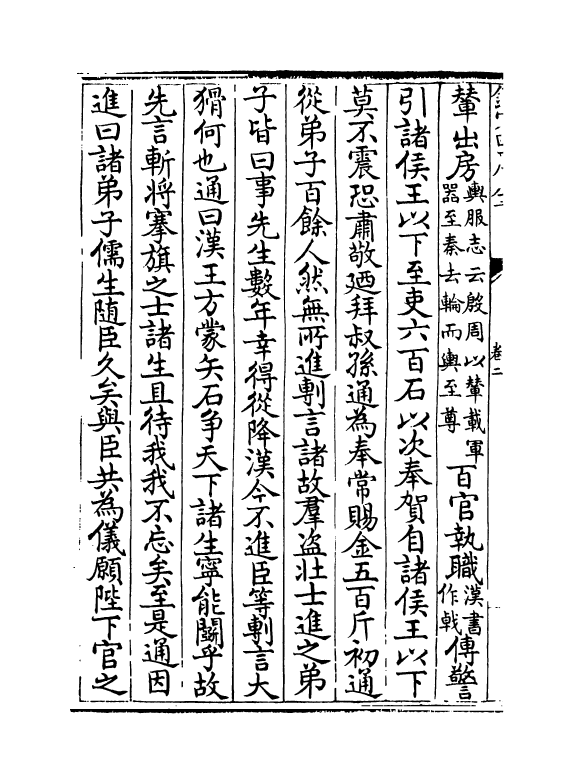 輦出房輿服志云殷周以輦載軍器至秦去輪而輿至尊百官執職漢書作戟傳警
引諸侯王以下至吏六百石以次奉賀自諸侯王以下
莫不震恐肅敬廼拜叔孫通為奉常賜金五百斤初通
從弟子百餘人然無所進剸言諸故羣盗壯士進之弟
子皆曰事先生數年幸得從降漢今不進臣等剸言大
猾何也通曰漢王方蒙矢石争天下諸生寧能鬭乎故
先言斬将搴旗之士諸生且待我我不忘矣至是通因
進曰諸弟子儒生随臣久矣與臣共為儀願陛下官之
卷二